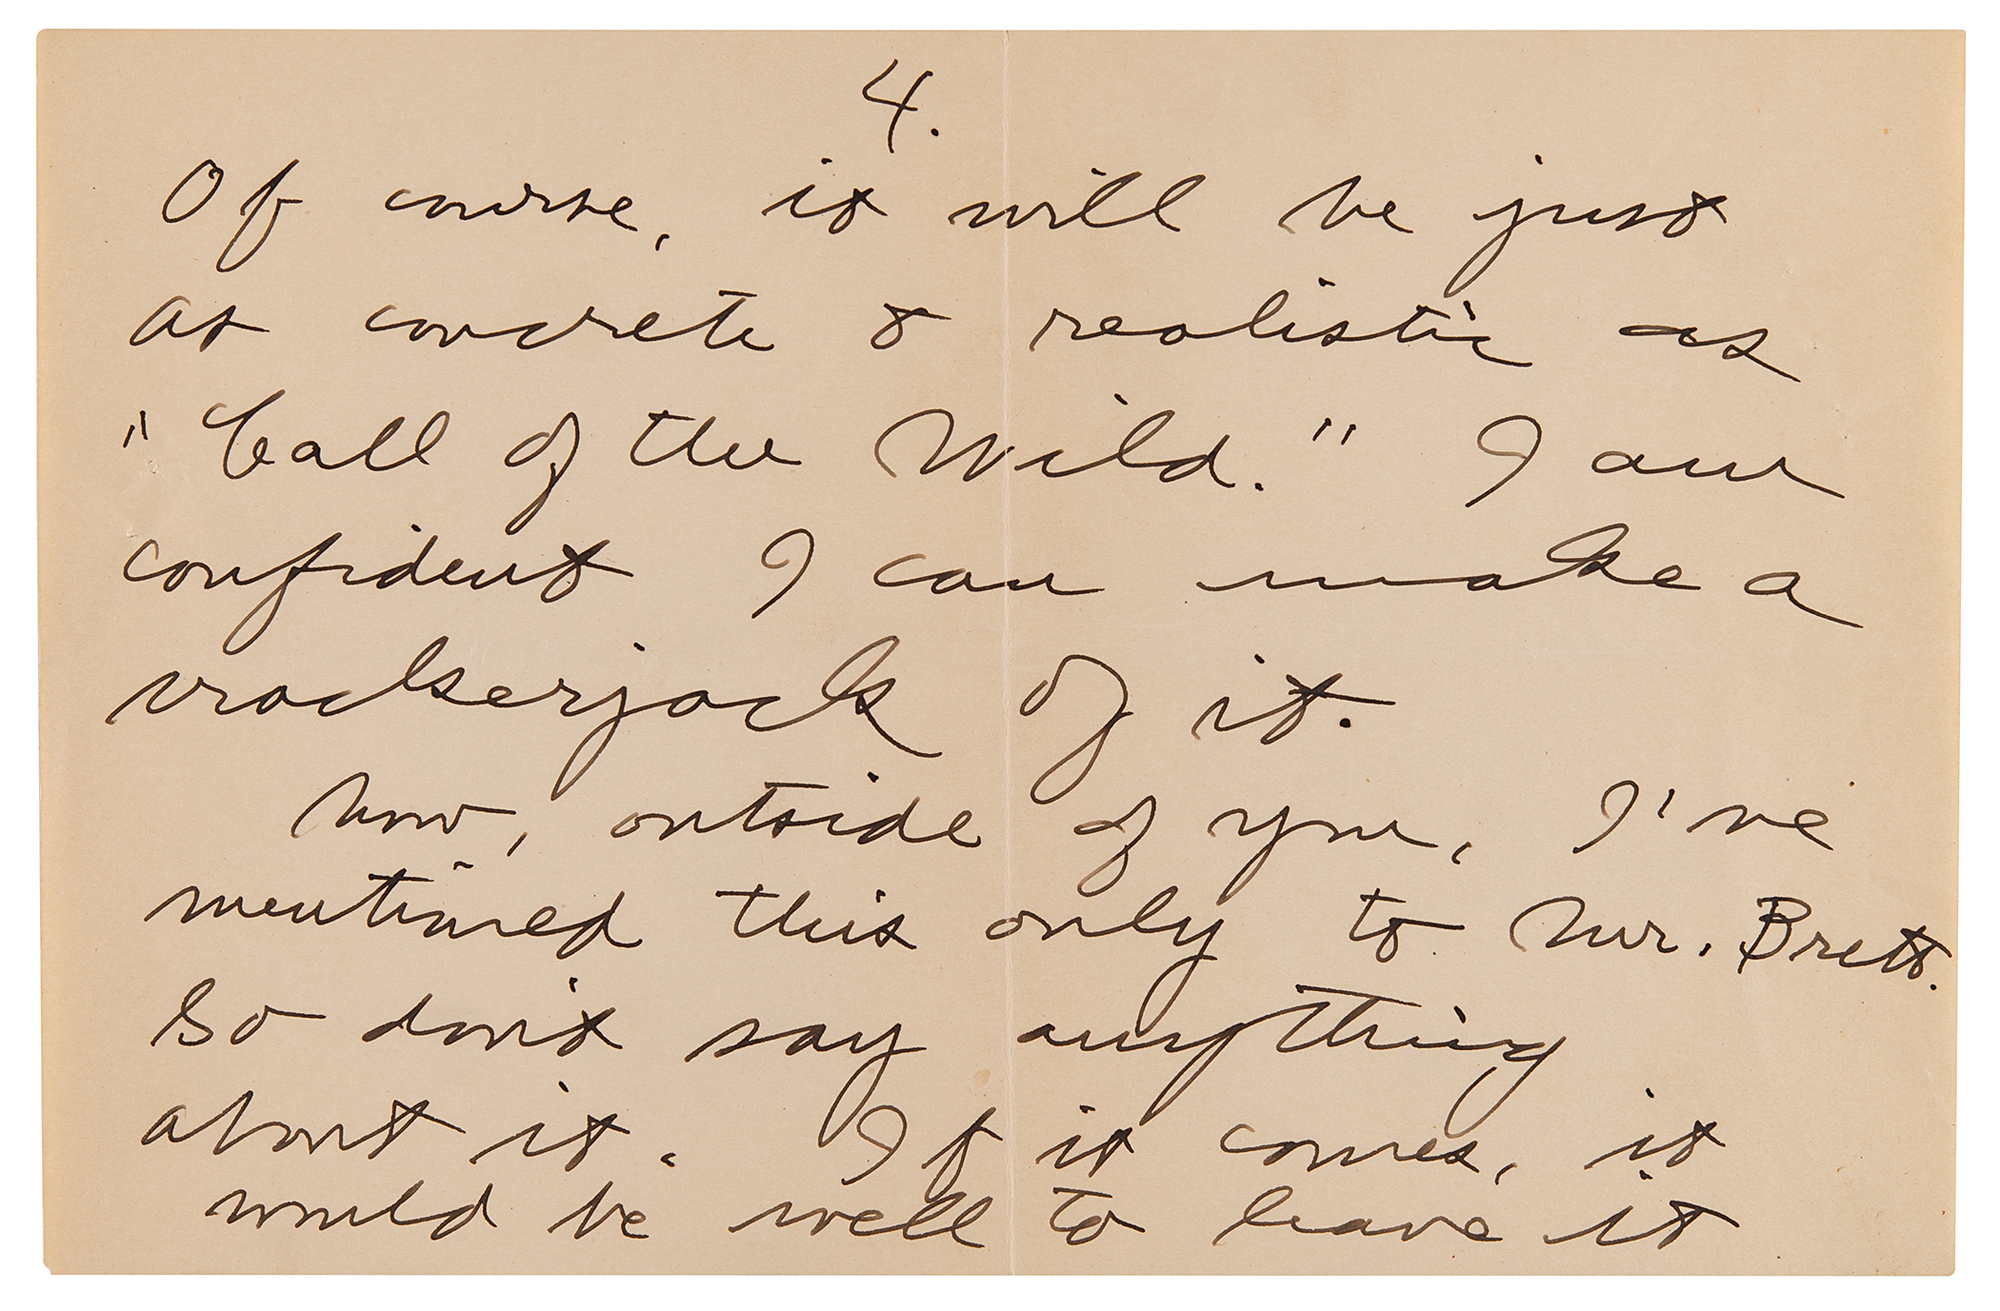 4.
Of course, it will be just
as concrete & realistic as
"Call of the Wild." I am
confident I can make a
crackerjack of it.
Now, outside of you, I've
mentioned this only to Mr. Brett.
So don't say anything
about it. If it comes, it
would be well to leave it